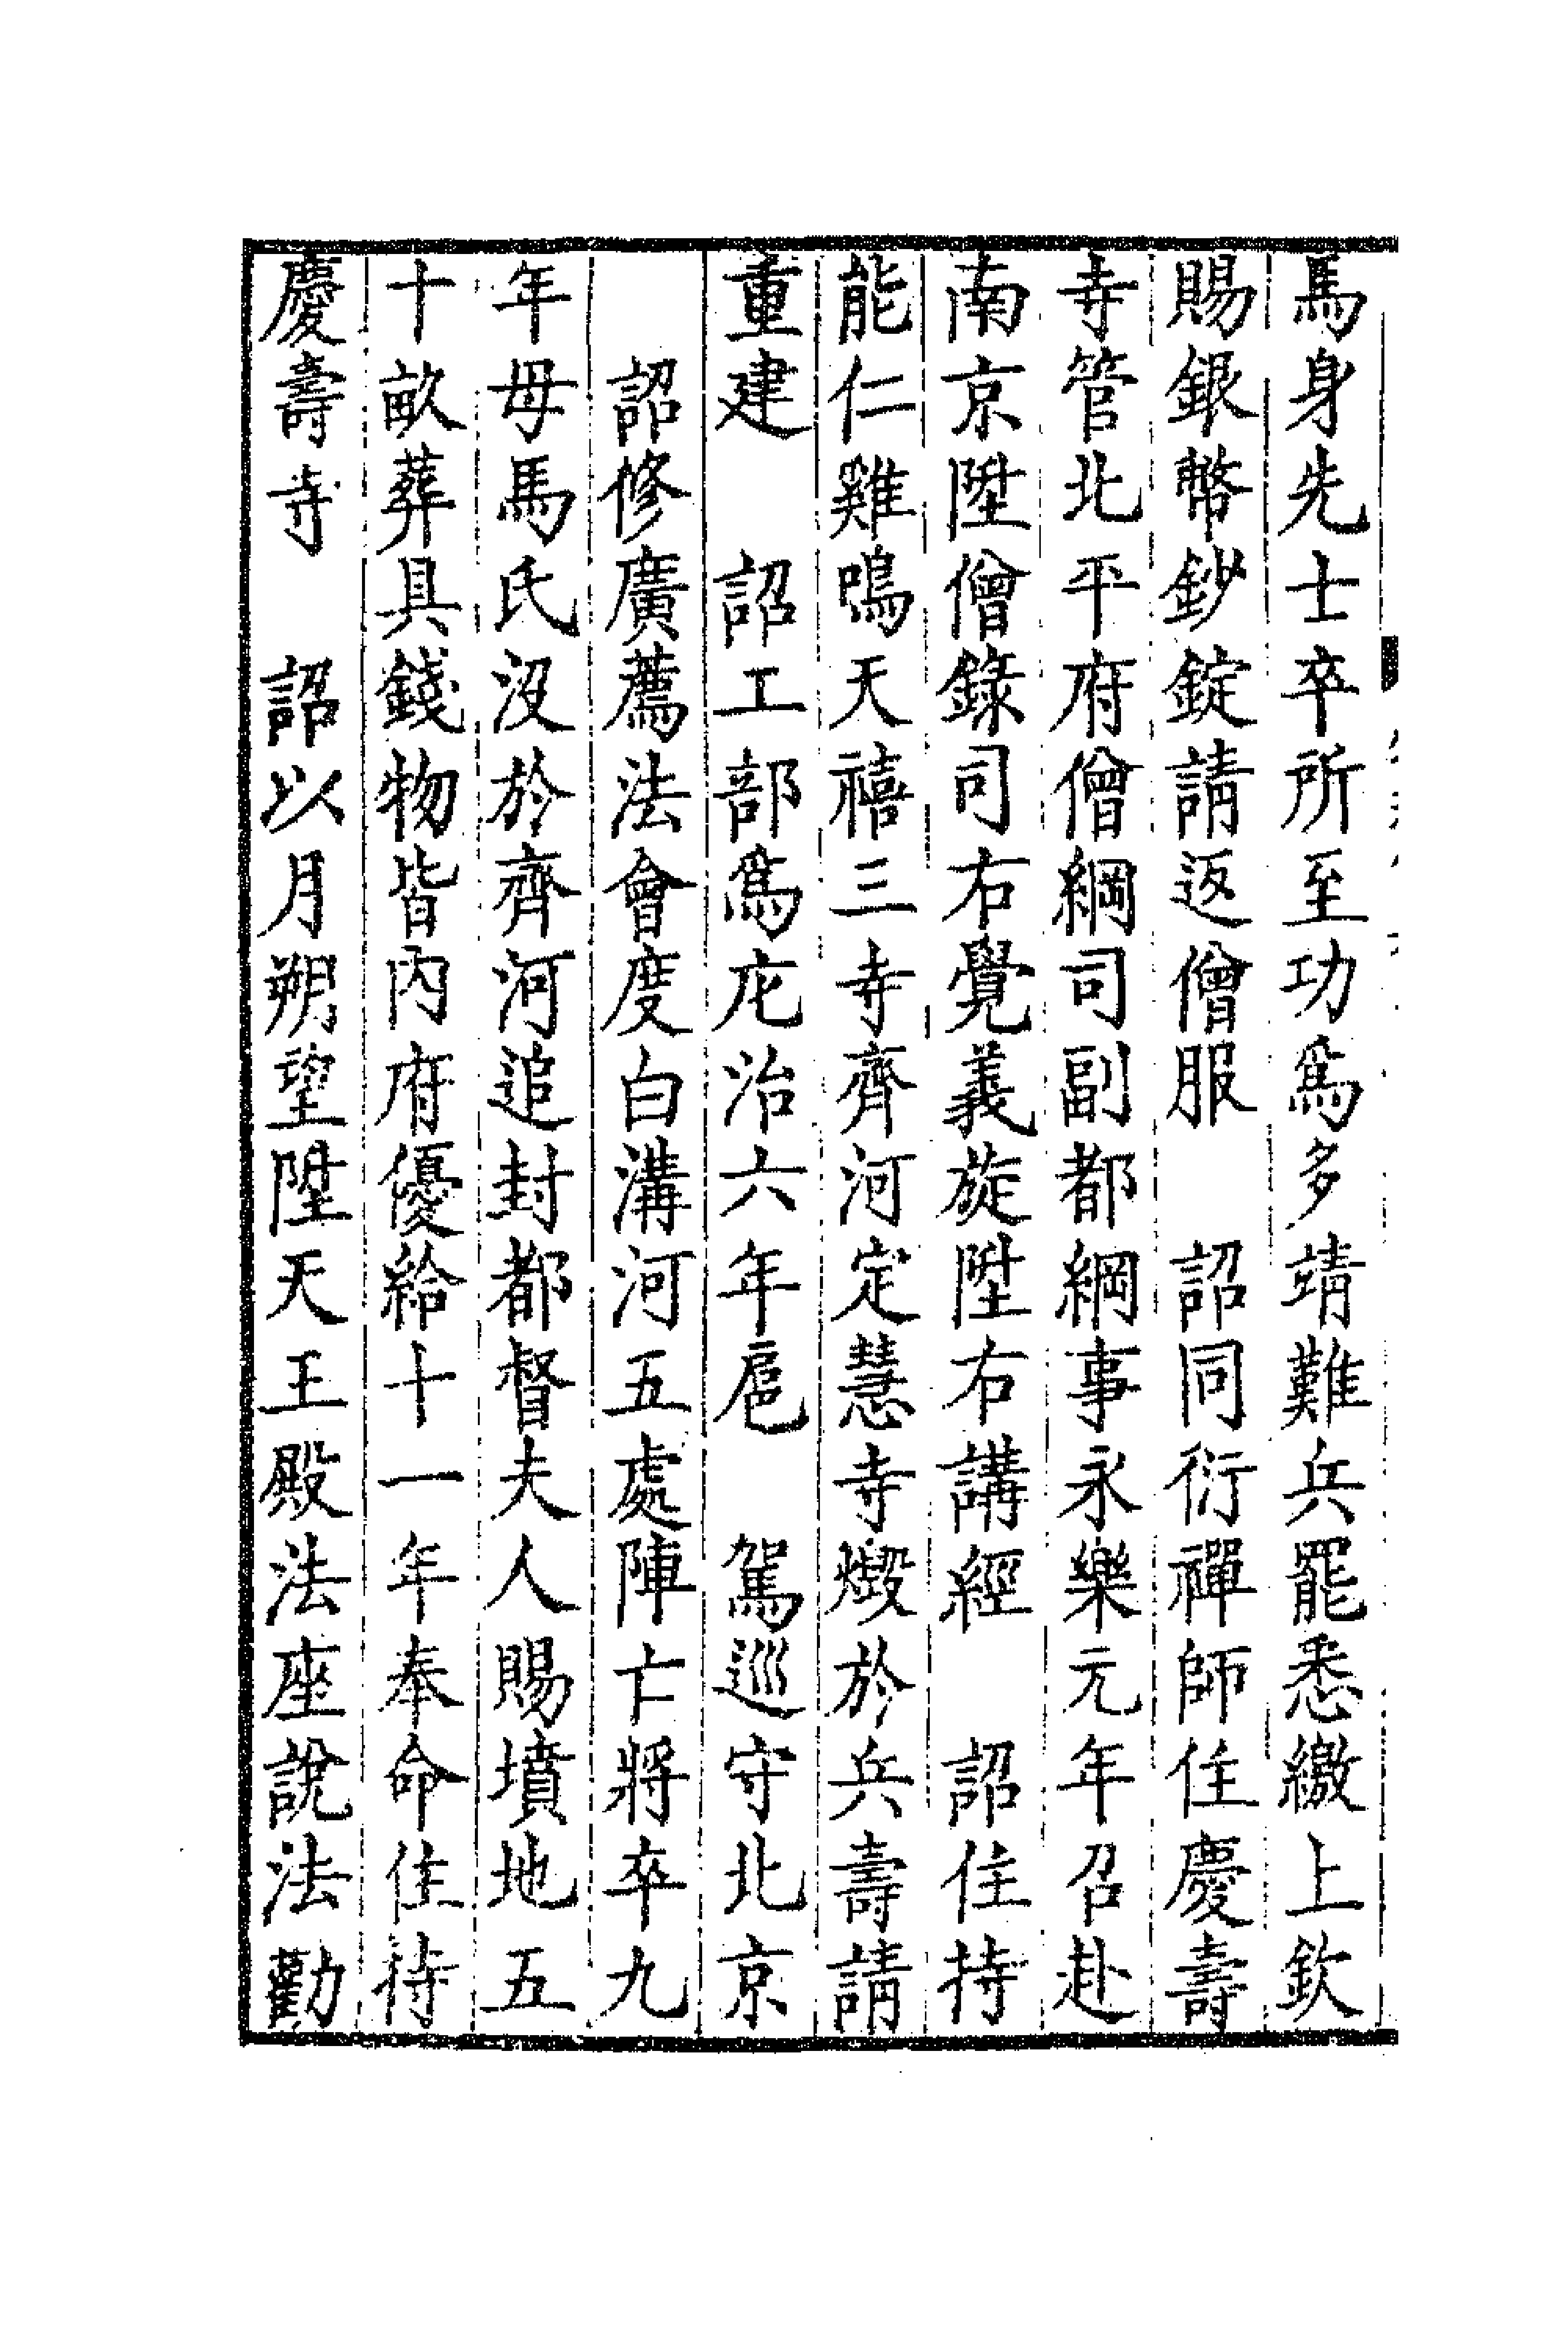 馬身先士卒所至功爲多靖難兵罷悉繳上欽
賜銀幣鈔錠請返僧服　詔同衍禪師住慶壽
寺管北平府僧綱司副都綱事永樂元年召赴
南京陞僧錄司右覺義旋陞右講經　詔住持
能仁雞鳴天禧三寺齊河定慧寺燬於兵壽請
重建　詔工部爲庀治六年扈　駕巡守北京
　詔修廣薦法會度白溝河五處陣亡將卒九
年母馬氏沒於齊河追封都督夫人賜墳地五
十畝葬具錢物皆內府優給十一年奉命住待
慶壽寺　詔以月朔望陞天王殿法座說法勸